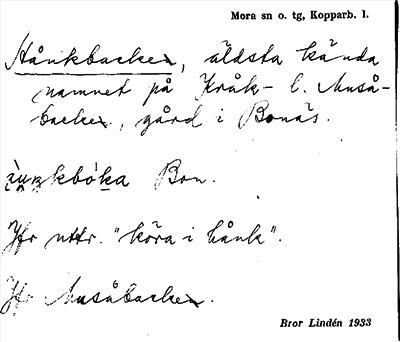 Mora sn o. tg, Kopparb. l.
Hånkbacken, äldsta kända
namnet på Kråk- l. Muså-
backen, gård i Bonäs.
Bon.
Jfr uttr. "köra i hånk".
Jfr Musåbacken.
Bror Lindén 1933